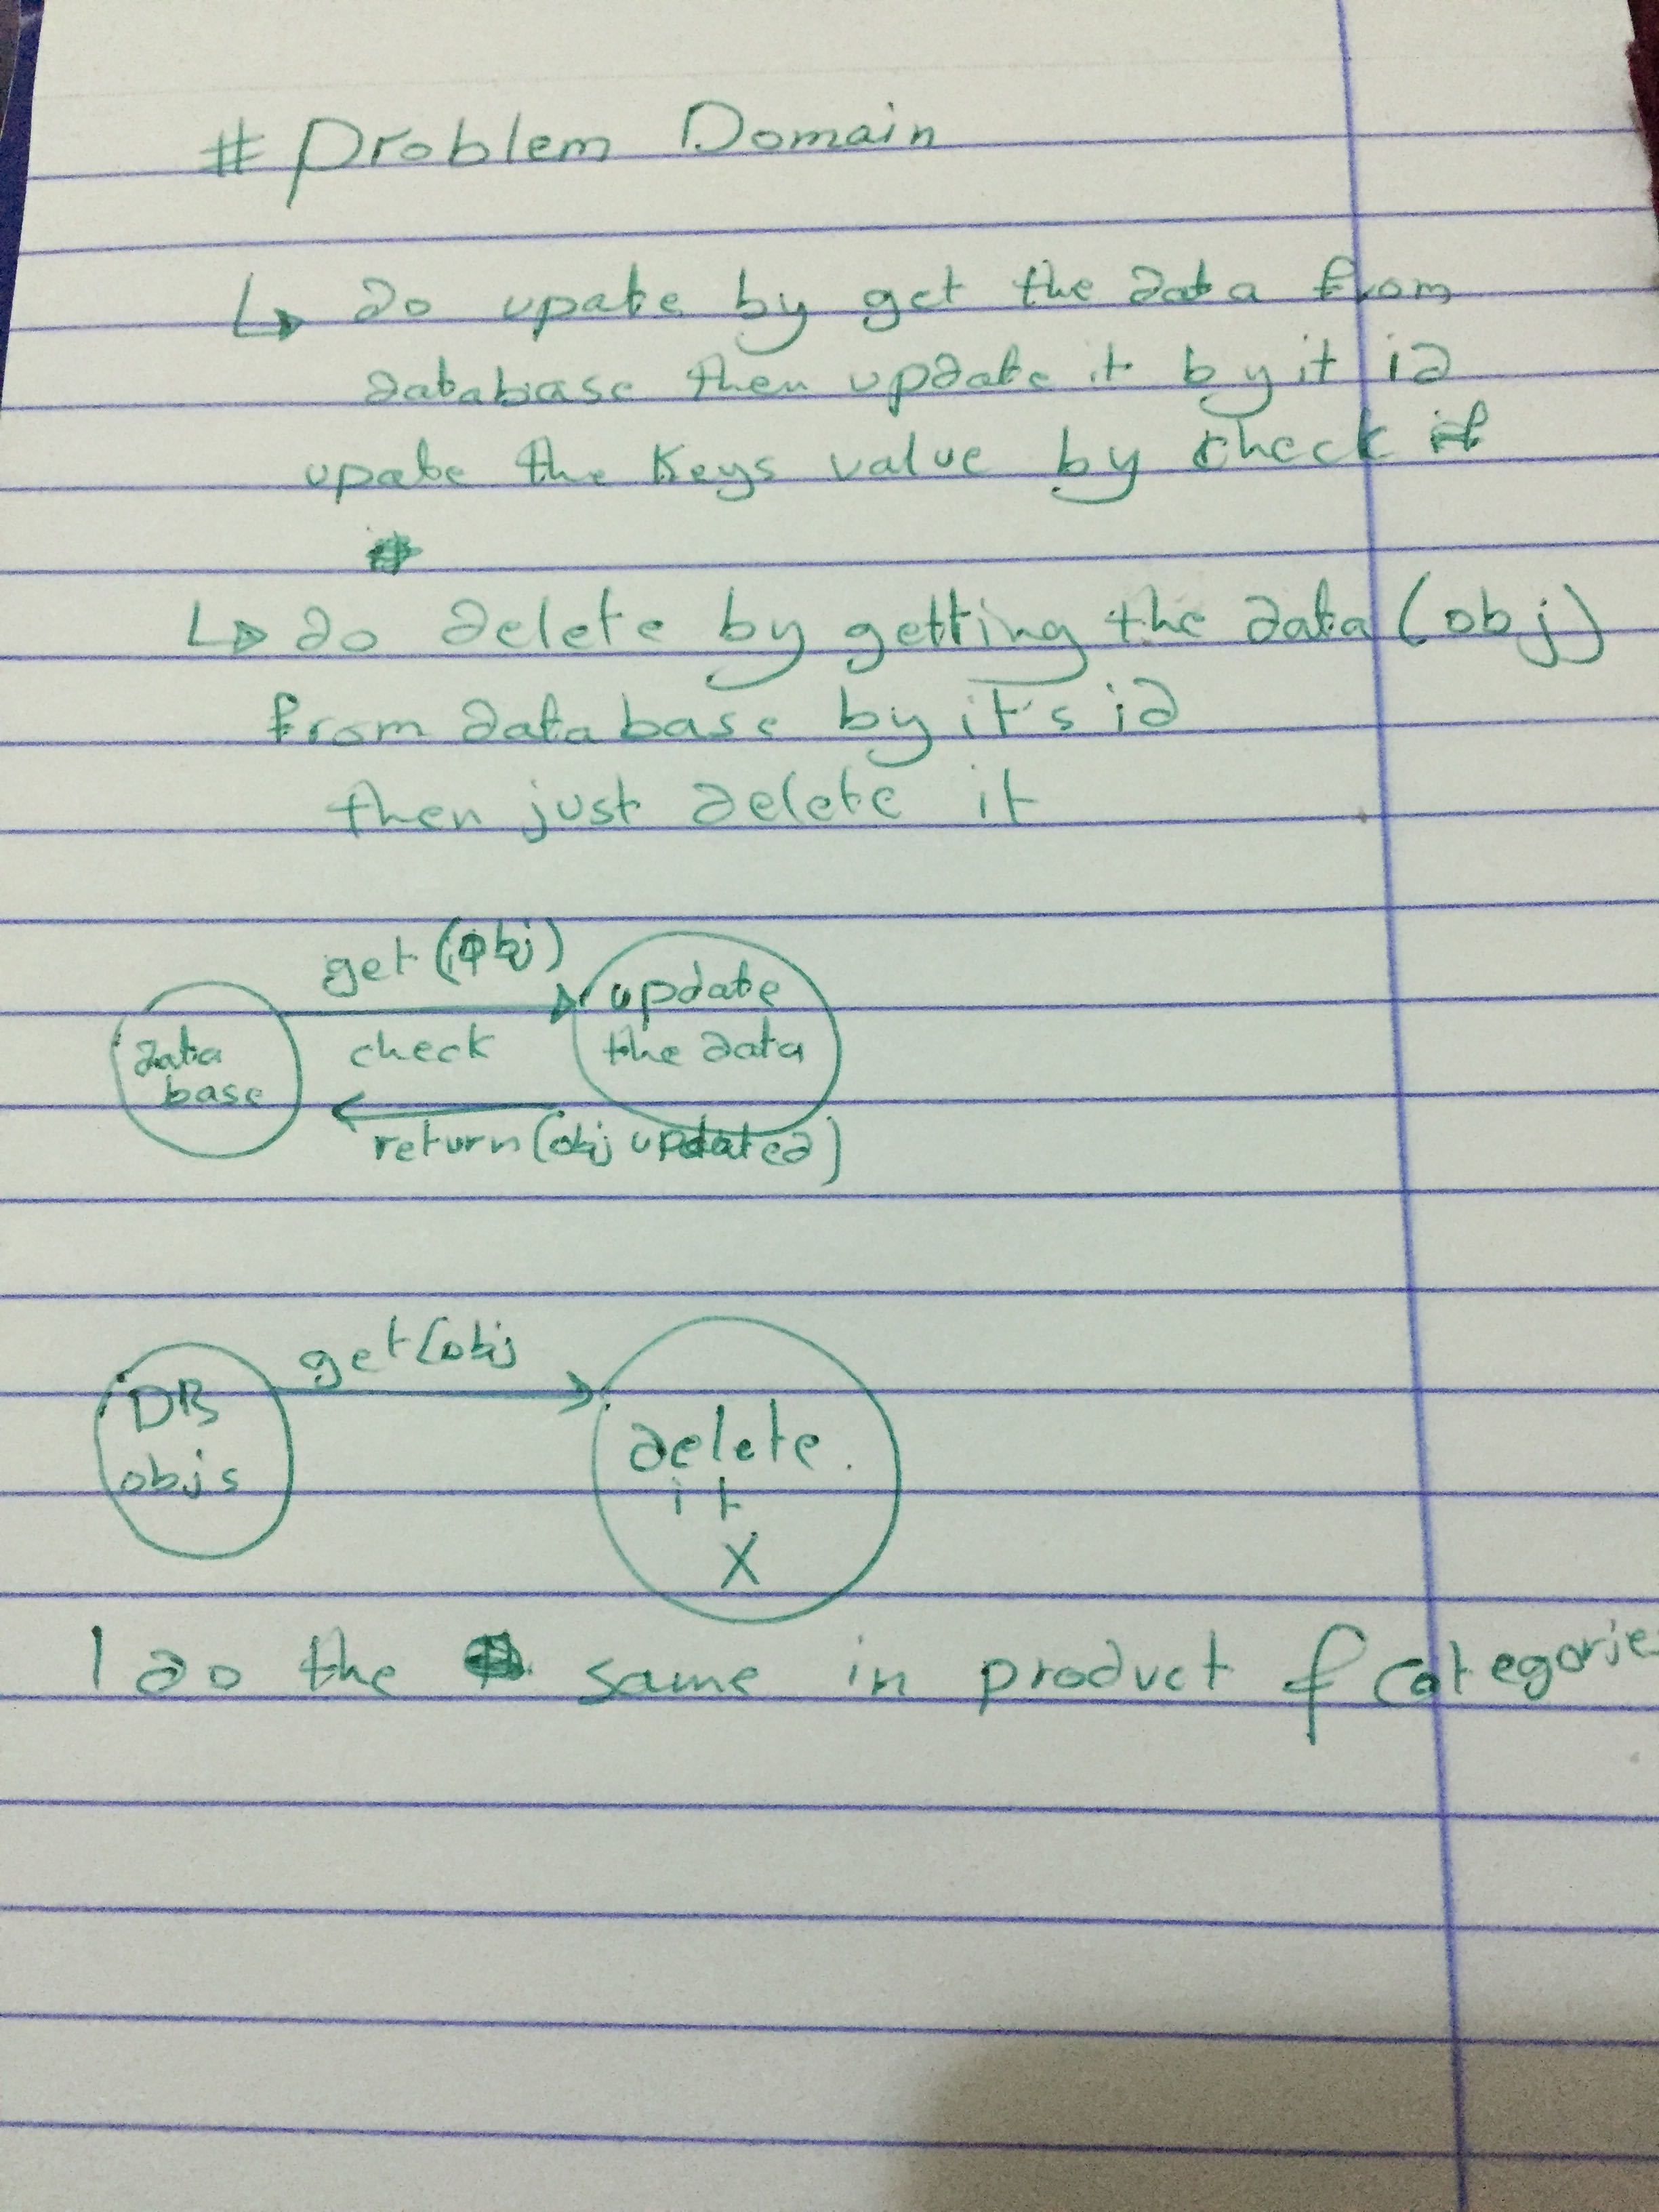 # Problem Domain
do upate by get the data from
database then update it by it id
upate the Keys value by check if
do delete by getting the data (obj)
from data base by it's id
then just delete it
get (obj)
update
the data
check
data
base
return (obj updated)
get(obj
DB
objs
delete
it
X
I do the same in product & categorie